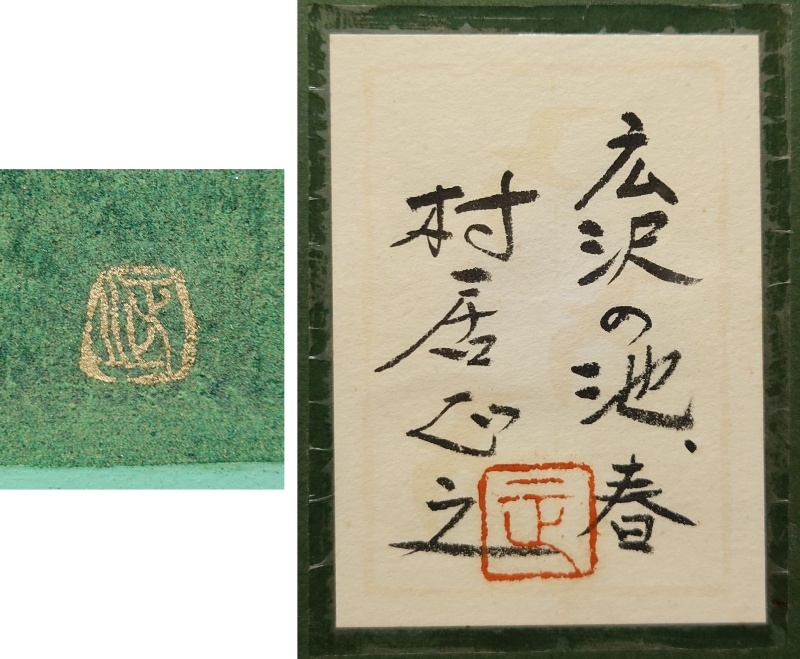 広沢の池、春
村居正之
正